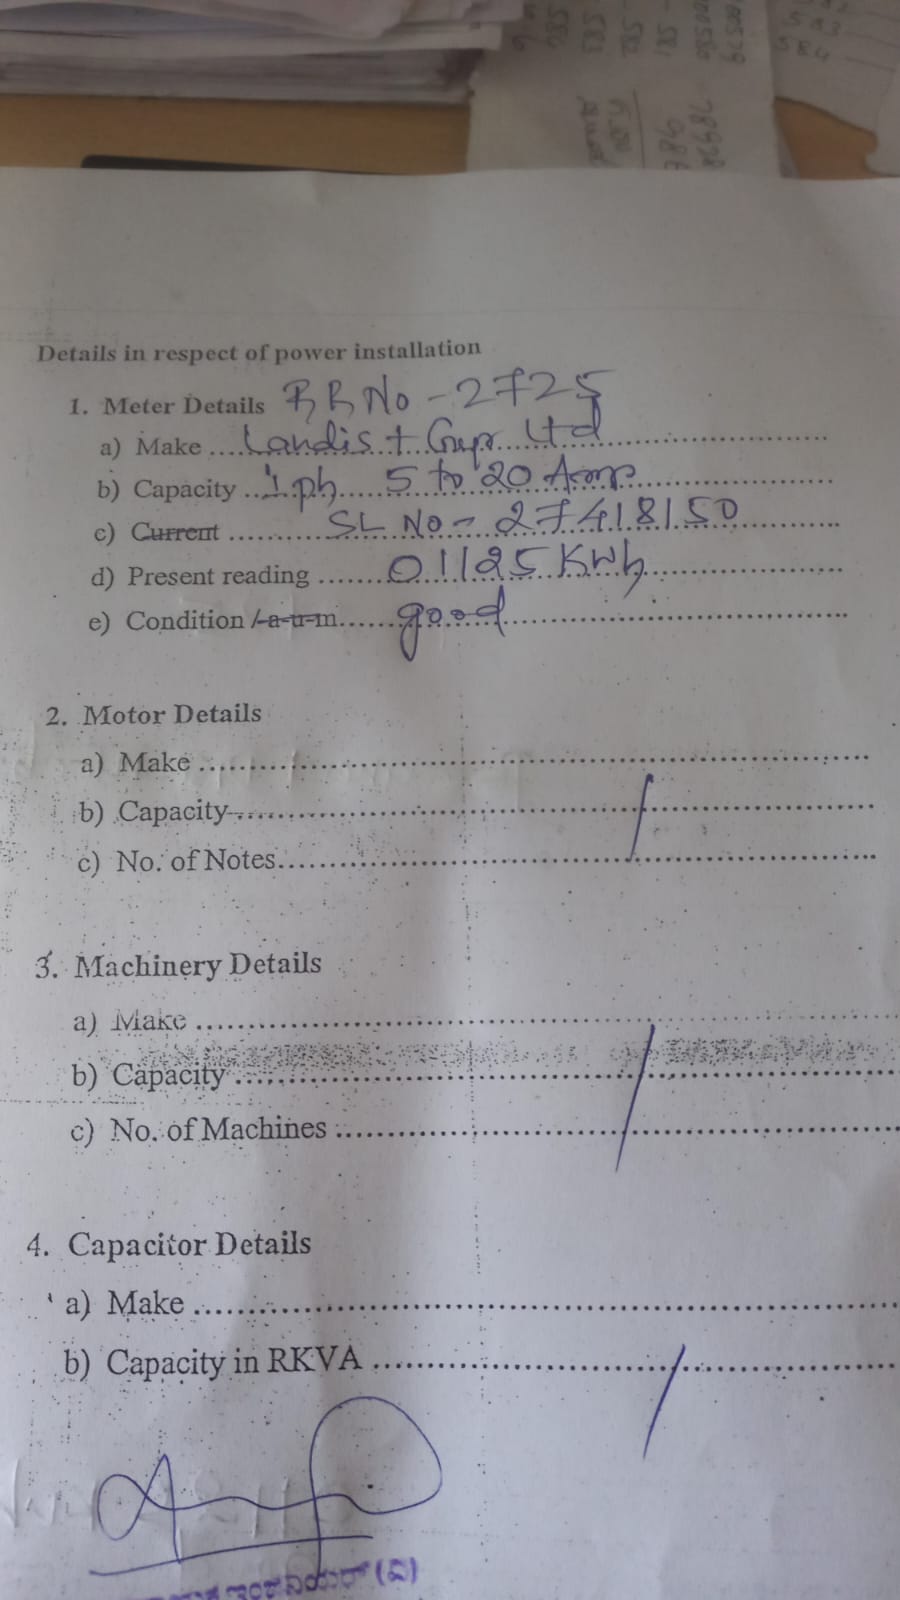 585
583
584
Details in respect of power installation
1. Meter Details RR No - 2725
a) Make ....Landis + Gyr Ltd....
b) Capacity ..1 ph..... 5 to 20 Amp......
c) Current .......... SL No - 27418150 ......
d) Present reading ....... 01125 KWh ......
e) Condition /-a-u-m...... good ......
2. Motor Details
a) Make ......
b) Capacity ......
c) No. of Notes......
3. Machinery Details
a) Make ......
b) Capacity ......
c) No. of Machines ......
4. Capacitor Details
a) Make ......
b) Capacity in RKVA ......
ಇಂಜಿನಿಯರ್ (ವಿ)